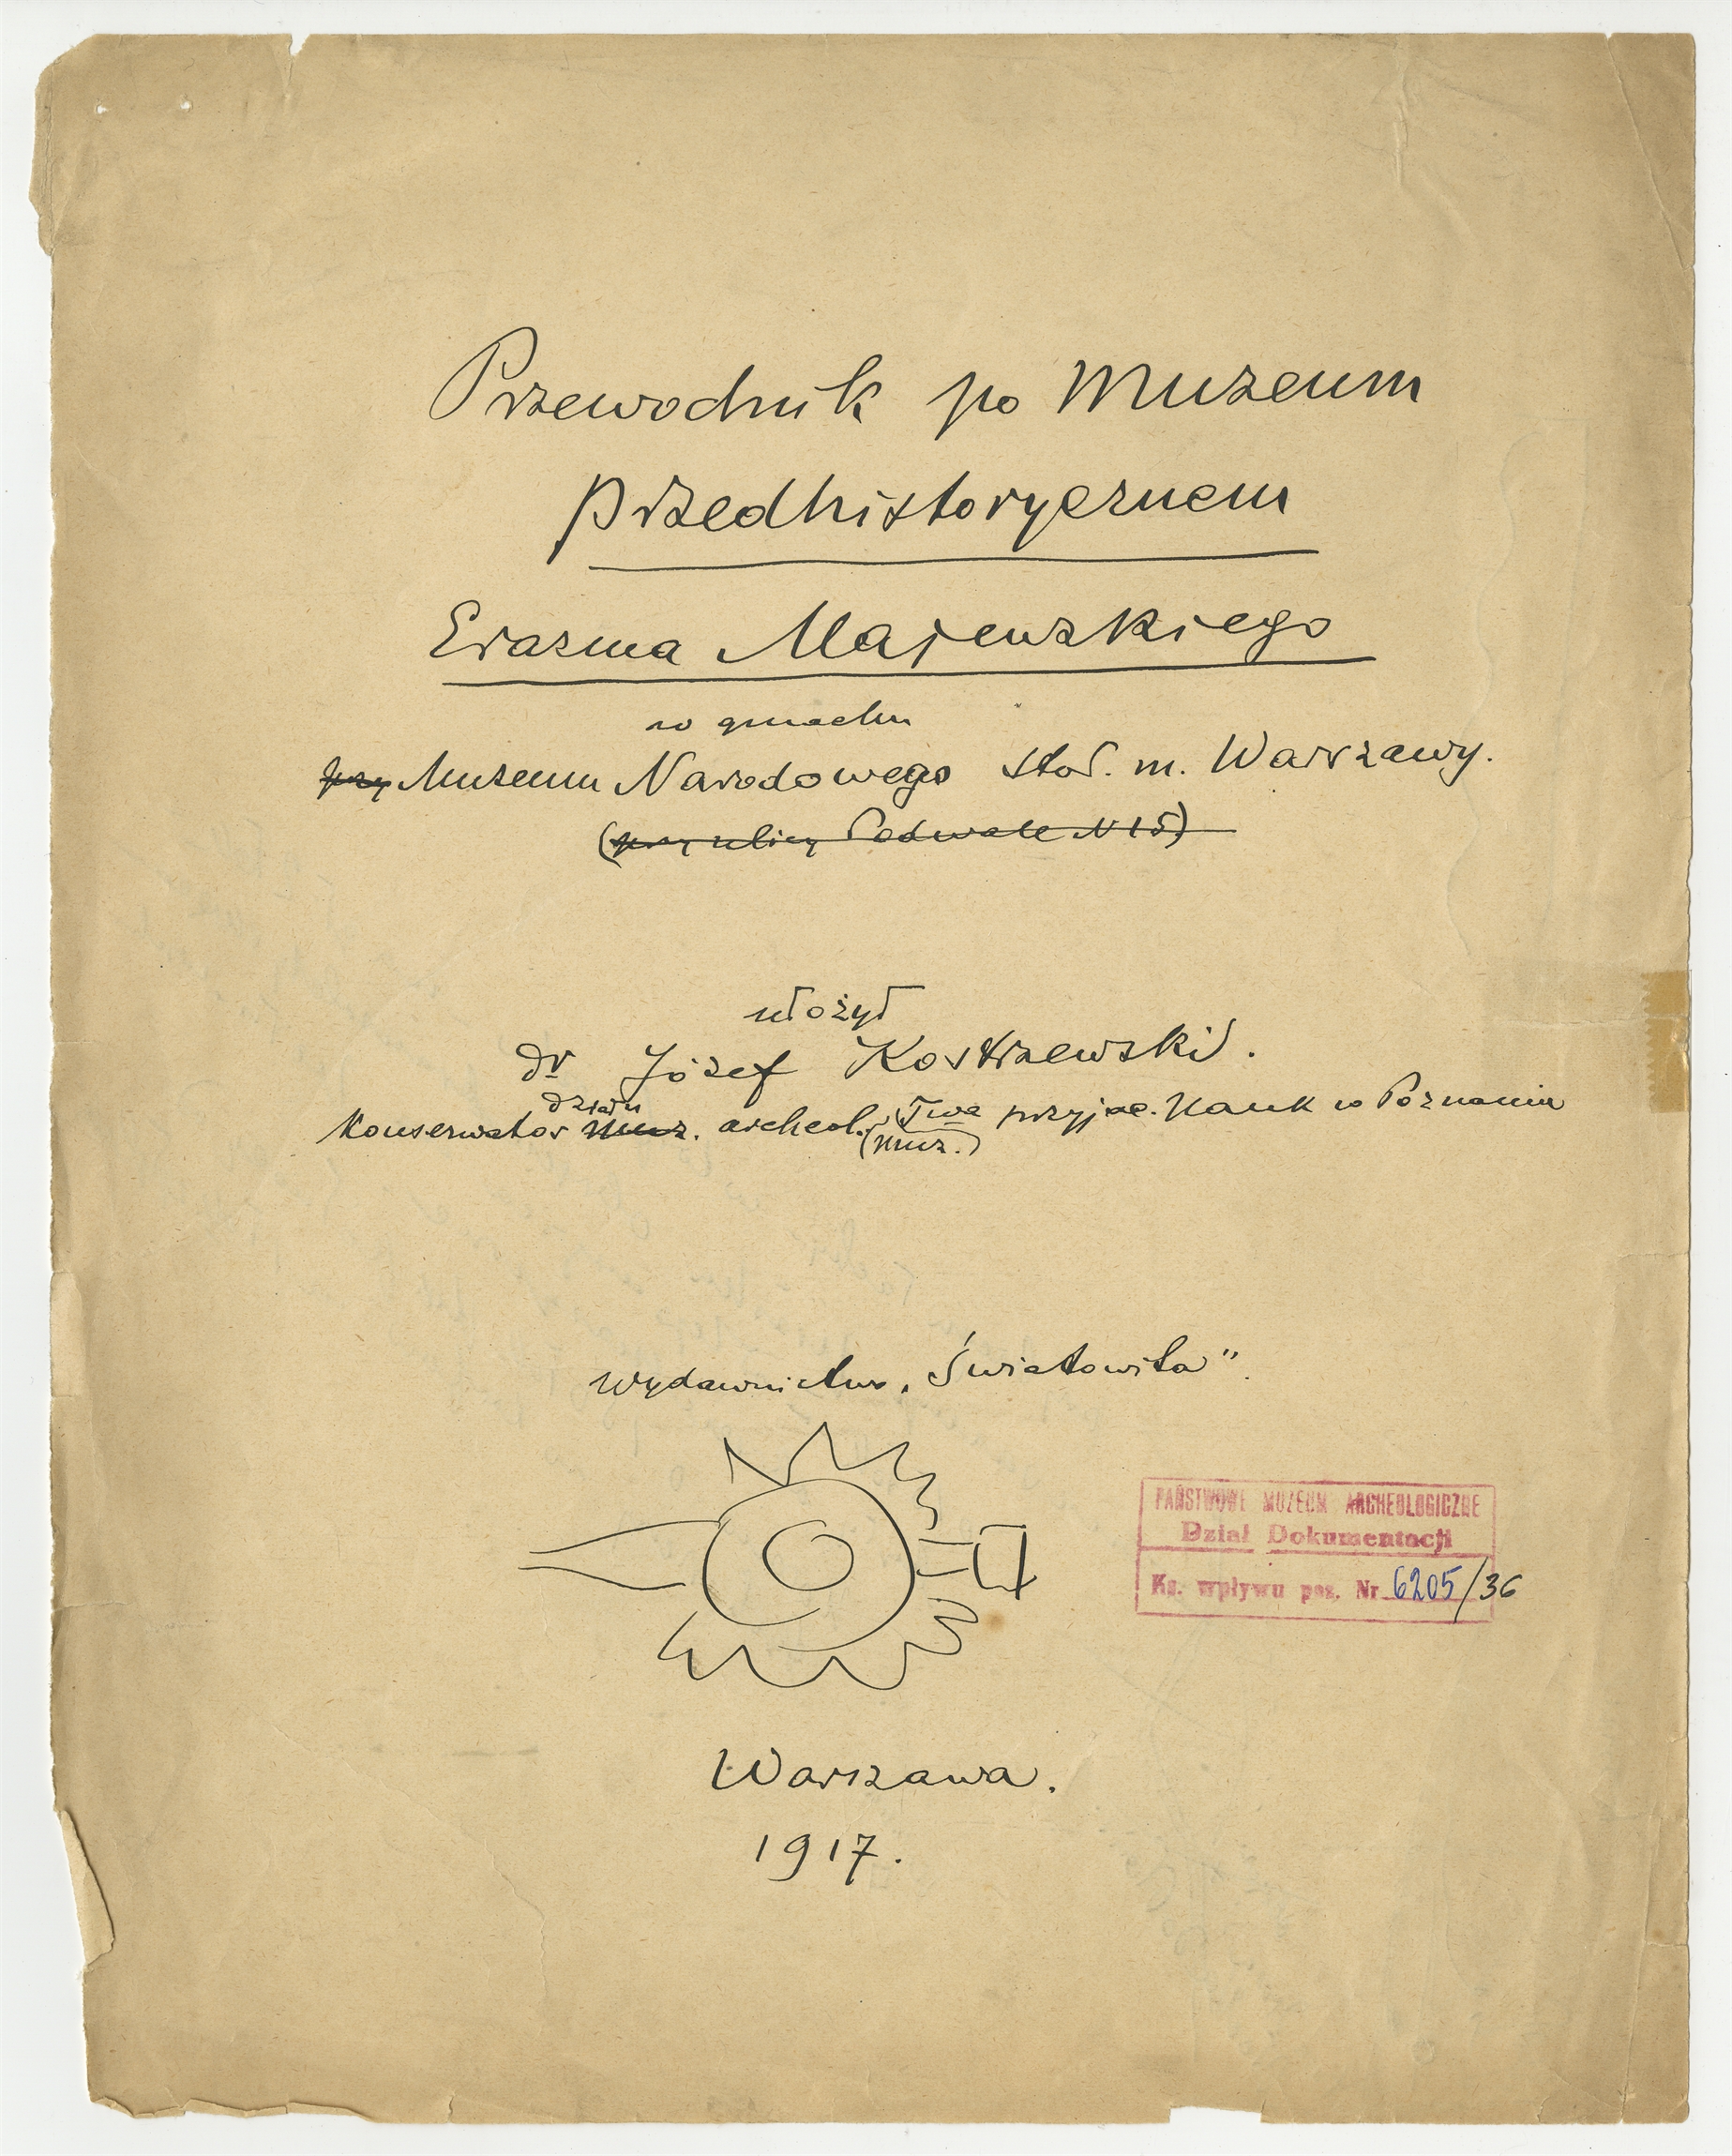 Przewodnik po Muzeum
przedhistorycznem
Erazma Majewskiego
w gmachu
przy Muzeum Narodowego stoł. m. Warszawy.
(przy ulicy Podwale N 15)
ułożył
dr Józef Kostrzewski.
działu
Konserwator Muz. archeol. Twa przyjac. Nauk w Poznaniu
(muz.)
Wydawnictwo „Światowita”.
PAŃSTWOWE MUZEUM ARCHEOLOGICZNE
Dział Dokumentacji
Ks. wpływu poz. Nr 6205/36
Warszawa.
1917.